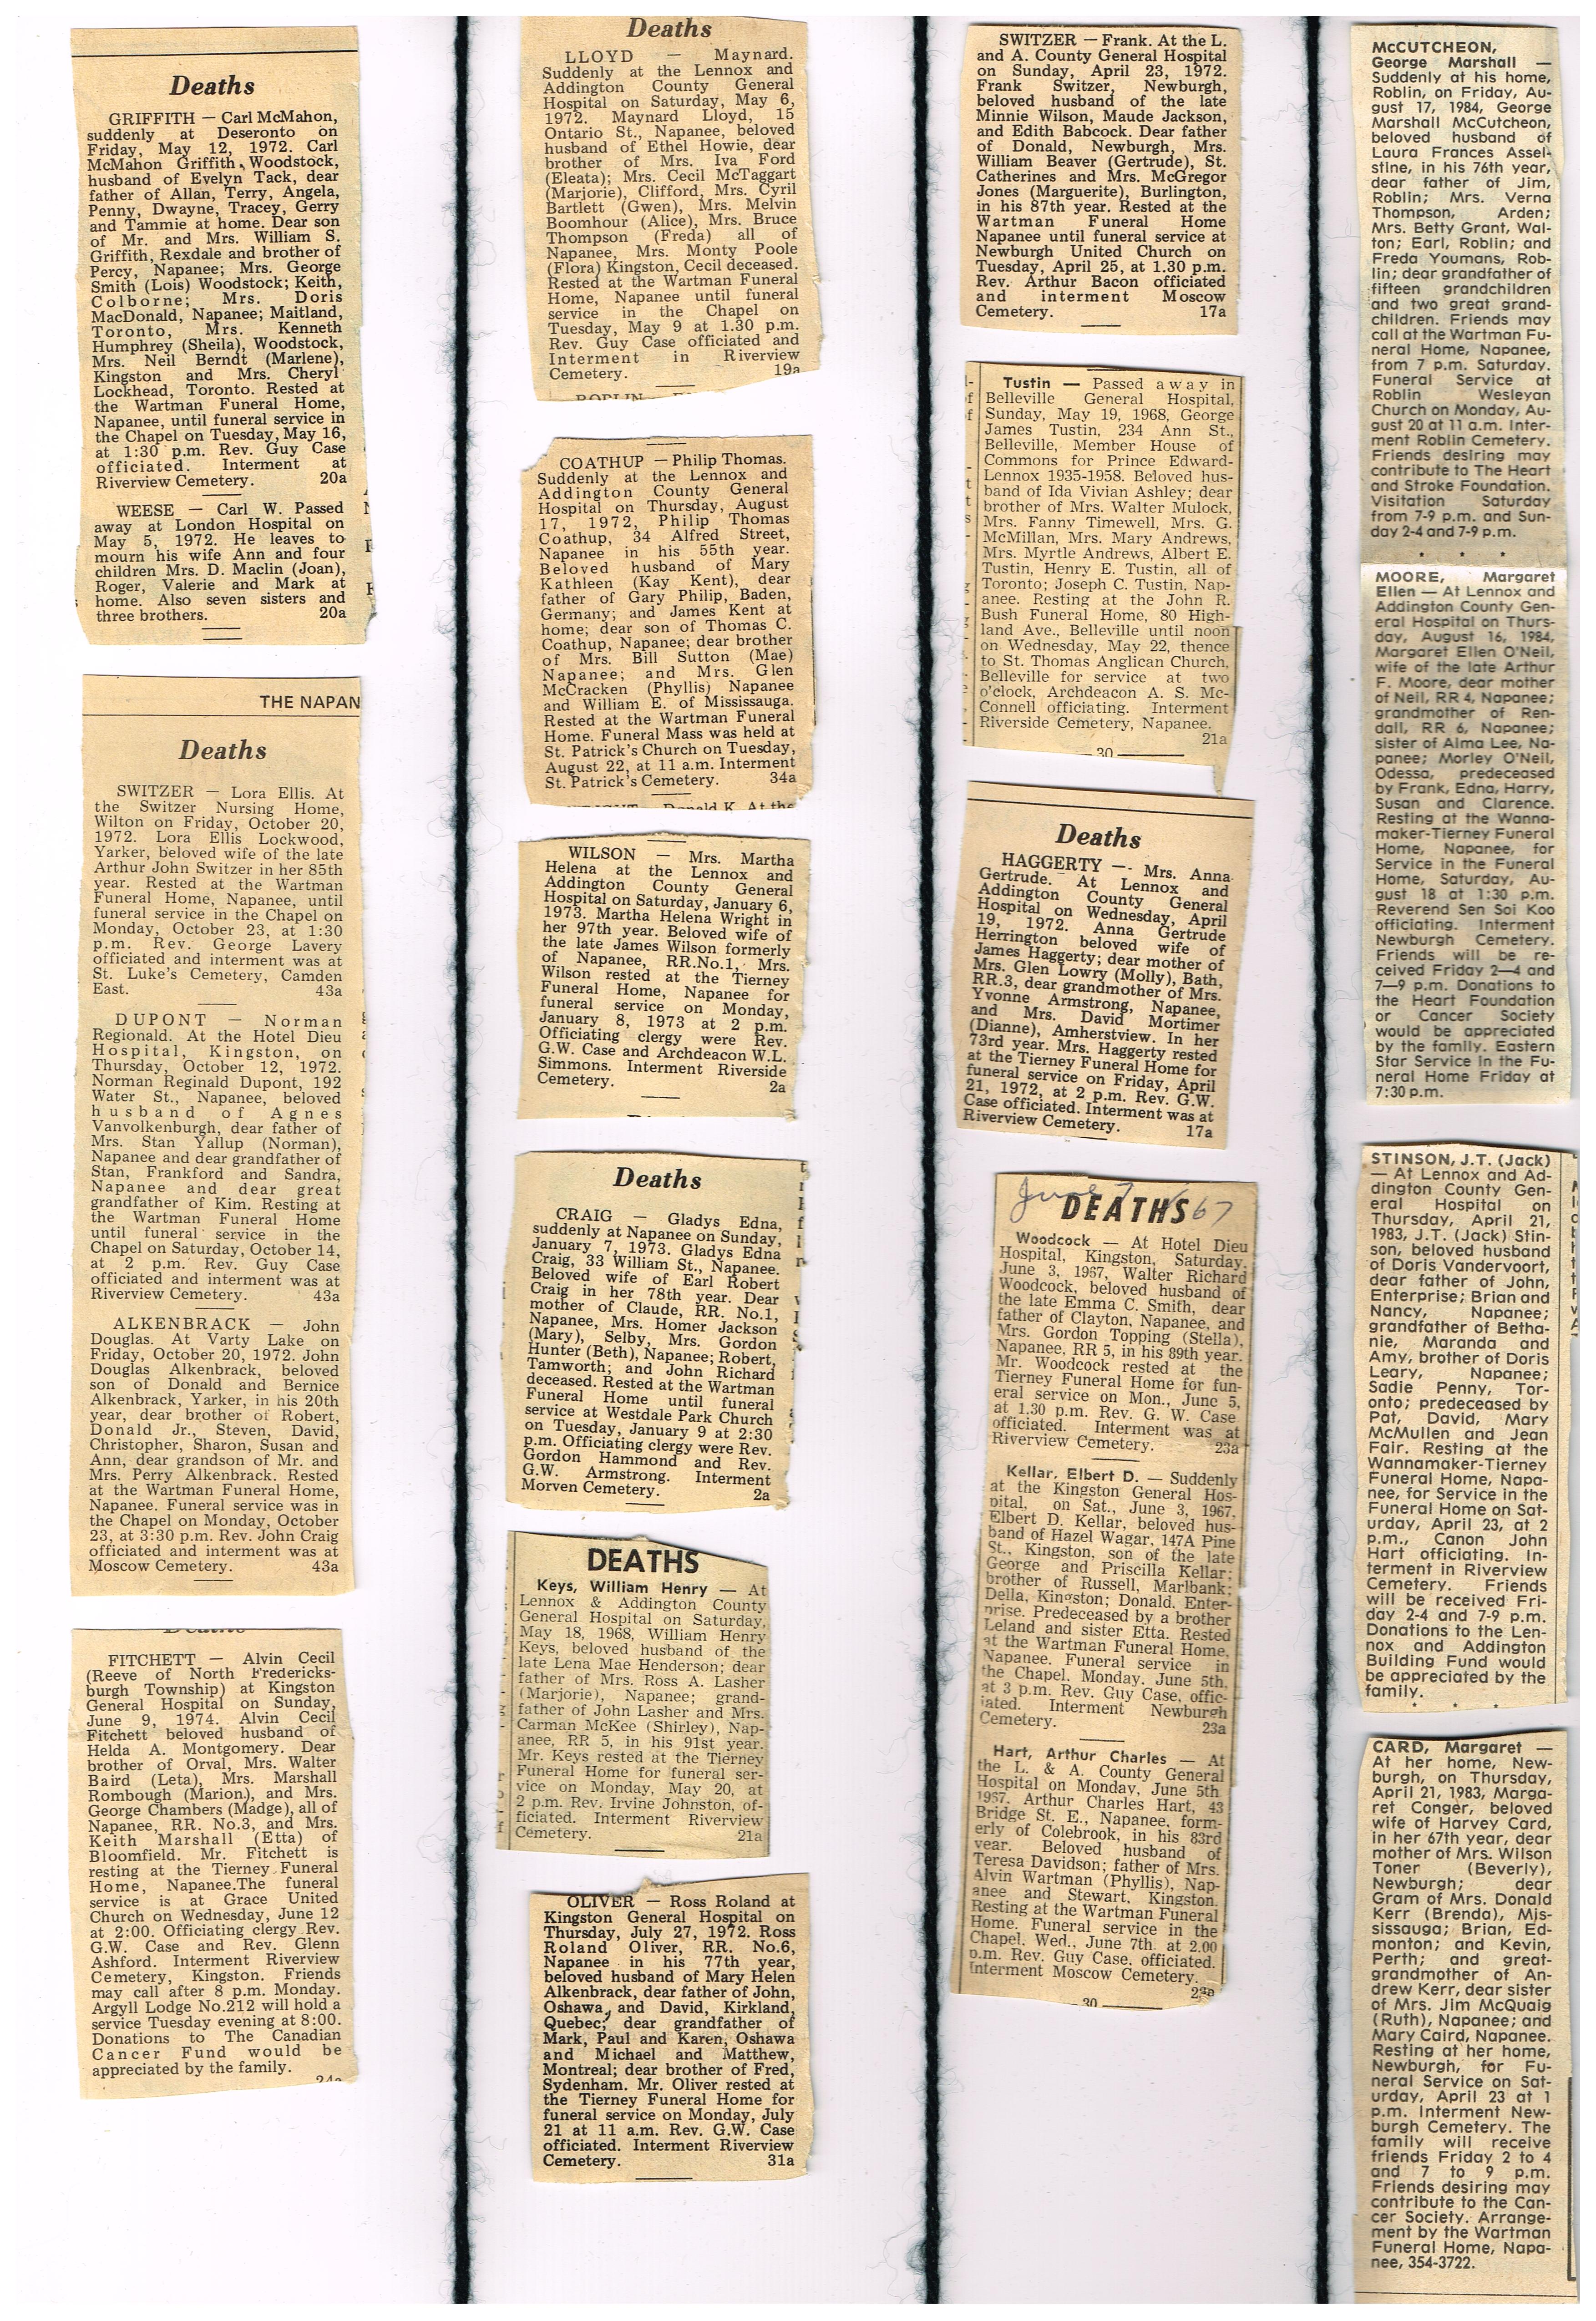 Deaths
GRIFFITH — Carl McMahon,
suddenly at Deseronto on
Friday, May 12, 1972. Carl
McMahon Griffith, Woodstock,
husband of Evelyn Tack, dear
father of Allan, Terry, Angela,
Penny, Dwayne, Tracey, Gerry
and Tammie at home. Dear son
of Mr. and Mrs. William S.
Griffith, Rexdale and brother of
Percy, Napanee; Mrs. George
Smith (Lois) Woodstock; Keith,
Colborne; Mrs. Doris
MacDonald, Napanee; Maitland,
Toronto, Mrs. Kenneth
Humphrey (Sheila), Woodstock,
Mrs. Neil Berndt (Marlene),
Kingston and Mrs. Cheryl
Lockhead, Toronto. Rested at
the Wartman Funeral Home,
Napanee, until funeral service in
the Chapel on Tuesday, May 16,
at 1:30 p.m. Rev. Guy Case
officiated. Interment at
Riverview Cemetery. 20a
WEESE — Carl W. Passed
away at London Hospital on
May 5, 1972. He leaves to
mourn his wife Ann and four
children Mrs. D. Maclin (Joan),
Roger, Valerie and Mark at
home. Also seven sisters and
three brothers. 20a
THE NAPAN
Deaths
SWITZER — Lora Ellis. At
the Switzer Nursing Home,
Wilton on Friday, October 20,
1972. Lora Ellis Lockwood,
Yarker, beloved wife of the late
Arthur John Switzer in her 85th
year. Rested at the Wartman
Funeral Home, Napanee, until
funeral service in the Chapel on
Monday, October 23, at 1:30
p.m. Rev. George Lavery
officiated and interment was at
St. Luke's Cemetery, Camden
East. 43a
DUPONT — Norman
Regionald. At the Hotel Dieu
Hospital, Kingston, on
Thursday, October 12, 1972.
Norman Reginald Dupont, 192
Water St., Napanee, beloved
husband of Agnes
Vanvolkenburgh, dear father of
Mrs. Stan Yallup (Norman),
Napanee and dear grandfather of
Stan, Frankford and Sandra,
Napanee and dear great
grandfather of Kim. Resting at
the Wartman Funeral Home
until funeral service in the
Chapel on Saturday, October 14,
at 2 p.m. Rev. Guy Case
officiated and interment was at
Riverview Cemetery. 43a
ALKENBRACK — John
Douglas. At Varty Lake on
Friday, October 20, 1972. John
Douglas Alkenbrack, beloved
son of Donald and Bernice
Alkenbrack, Yarker, in his 20th
year, dear brother of Robert,
Donald Jr., Steven, David,
Christopher, Sharon, Susan and
Ann, dear grandson of Mr. and
Mrs. Perry Alkenbrack. Rested
at the Wartman Funeral Home,
Napanee. Funeral service was in
the Chapel on Monday, October
23, at 3:30 p.m. Rev. John Craig
officiated and interment was at
Moscow Cemetery. 43a
Deaths
FITCHETT — Alvin Cecil
(Reeve of North Fredericks-
burgh Township) at Kingston
General Hospital on Sunday,
June 9, 1974. Alvin Cecil
Fitchett beloved husband of
Helda A. Montgomery. Dear
brother of Orval, Mrs. Walter
Baird (Leta), Mrs. Marshall
Rombough (Marion), and Mrs.
George Chambers (Madge), all of
Napanee, RR. No.3, and Mrs.
Keith Marshall (Etta) of
Bloomfield. Mr. Fitchett is
resting at the Tierney Funeral
Home, Napanee.The funeral
service is at Grace United
Church on Wednesday, June 12
at 2:00. Officiating clergy Rev.
G.W. Case and Rev. Glenn
Ashford. Interment Riverview
Cemetery, Kingston. Friends
may call after 8 p.m. Monday.
Argyll Lodge No.212 will hold a
service Tuesday evening at 8:00.
Donations to The Canadian
Cancer Fund would be
appreciated by the family.
24a
Deaths
LLOYD — Maynard.
Suddenly at the Lennox and
Addington County General
Hospital on Saturday, May 6,
1972. Maynard Lloyd, 15
Ontario St., Napanee, beloved
husband of Ethel Howie, dear
brother of Mrs. Iva Ford
(Eleata); Mrs. Cecil McTaggart
(Marjorie), Clifford, Mrs. Cyril
Bartlett (Gwen), Mrs. Melvin
Boomhour (Alice), Mrs. Bruce
Thompson (Freda) all of
Napanee, Mrs. Monty Poole
(Flora) Kingston, Cecil deceased.
Rested at the Wartman Funeral
Home, Napanee until funeral
service in the Chapel on
Tuesday, May 9 at 1.30 p.m.
Rev. Guy Case officiated and
Interment in Riverview
Cemetery. 19a
COATHUP — Philip Thomas.
Suddenly at the Lennox and
Addington County General
Hospital on Thursday, August
17, 1972, Philip Thomas
Coathup, 34 Alfred Street,
Napanee in his 55th year.
Beloved husband of Mary
Kathleen (Kay Kent), dear
father of Gary Philip, Baden,
Germany; and James Kent at
home; dear son of Thomas C.
Coathup, Napanee; dear brother
of Mrs. Bill Sutton (Mae)
Napanee; and Mrs. Glen
McCracken (Phyllis) Napanee
and William E. of Mississauga.
Rested at the Wartman Funeral
Home. Funeral Mass was held at
St. Patrick's Church on Tuesday,
August 22, at 11 a.m. Interment
St. Patrick's Cemetery. 34a
Donald K. At the
WILSON — Mrs. Martha
Helena at the Lennox and
Addington County General
Hospital on Saturday, January 6,
1973. Martha Helena Wright in
her 97th year. Beloved wife of
the late James Wilson formerly
of Napanee, RR.No.1, Mrs.
Wilson rested at the Tierney
Funeral Home, Napanee for
funeral service on Monday,
January 8, 1973 at 2 p.m.
Officiating clergy were Rev.
G.W. Case and Archdeacon W.L.
Simmons. Interment Riverside
Cemetery. 2a
Deaths
CRAIG — Gladys Edna,
suddenly at Napanee on Sunday,
January 7, 1973. Gladys Edna
Craig, 33 William St., Napanee.
Beloved wife of Earl Robert
Craig in her 78th year. Dear
mother of Claude, RR. No.1,
Napanee, Mrs. Homer Jackson
(Mary), Selby, Mrs. Gordon
Hunter (Beth), Napanee; Robert,
Tamworth; and John Richard
deceased. Rested at the Wartman
Funeral Home until funeral
service at Westdale Park Church
on Tuesday, January 9 at 2:30
p.m. Officiating clergy were Rev.
Gordon Hammond and Rev.
G.W. Armstrong. Interment
Morven Cemetery. 2a
DEATHS
Keys, William Henry — At
Lennox & Addington County
General Hospital on Saturday,
May 18, 1968, William Henry
Keys, beloved husband of the
late Lena Mae Henderson; dear
father of Mrs. Ross A. Lasher
(Marjorie), Napanee; grand-
father of John Lasher and Mrs.
Carman McKee (Shirley), Nap-
anee, RR 5, in his 91st year.
Mr. Keys rested at the Tierney
Funeral Home for funeral ser-
vice on Monday, May 20, at
2 p.m. Rev. Irvine Johnston, of-
ficiated. Interment Riverview
Cemetery. 21a
OLIVER — Ross Roland at
Kingston General Hospital on
Thursday, July 27, 1972. Ross
Roland Oliver, RR. No.6,
Napanee in his 77th year,
beloved husband of Mary Helen
Alkenbrack, dear father of John,
Oshawa, and David, Kirkland,
Quebec; dear grandfather of
Mark, Paul and Karen, Oshawa
and Michael and Matthew,
Montreal; dear brother of Fred,
Sydenham. Mr. Oliver rested at
the Tierney Funeral Home for
funeral service on Monday, July
21 at 11 a.m. Rev. G.W. Case
officiated. Interment Riverview
Cemetery. 31a
SWITZER — Frank. At the L.
and A. County General Hospital
on Sunday, April 23, 1972.
Frank Switzer, Newburgh,
beloved husband of the late
Minnie Wilson, Maude Jackson,
and Edith Babcock. Dear father
of Donald, Newburgh, Mrs.
William Beaver (Gertrude), St.
Catherines and Mrs. McGregor
Jones (Marguerite), Burlington,
in his 87th year. Rested at the
Wartman Funeral Home
Napanee until funeral service at
Newburgh United Church on
Tuesday, April 25, at 1.30 p.m.
Rev. Arthur Bacon officiated
and interment Moscow
Cemetery. 17a
Tustin — Passed away in
Belleville General Hospital,
Sunday, May 19, 1968, George
James Tustin, 234 Ann St.,
Belleville, Member House of
Commons for Prince Edward-
Lennox 1935-1958. Beloved hus-
band of Ida Vivian Ashley; dear
brother of Mrs. Walter Mulock,
Mrs. Fanny Timewell, Mrs. G.
McMillan, Mrs. Mary Andrews,
Mrs. Myrtle Andrews, Albert E.
Tustin, Henry E. Tustin, all of
Toronto; Joseph C. Tustin, Nap-
anee. Resting at the John R.
Bush Funeral Home, 80 High-
land Ave., Belleville until noon
on Wednesday, May 22, thence
to St. Thomas Anglican Church,
Belleville for service at two
o'clock, Archdeacon A. S. Mc-
Connell officiating. Interment
Riverside Cemetery, Napanee.
21a
30
Deaths
HAGGERTY -- Mrs. Anna
Gertrude. At Lennox and
Addington County General
Hospital on Wednesday, April
19, 1972. Anna Gertrude
Herrington beloved wife of
James Haggerty; dear mother of
Mrs. Glen Lowry (Molly), Bath,
RR.3, dear grandmother of Mrs.
Yvonne Armstrong, Napanee,
and Mrs. David Mortimer
(Dianne), Amherstview. In her
73rd year. Mrs. Haggerty rested
at the Tierney Funeral Home for
funeral service on Friday, April
21, 1972, at 2 p.m. Rev. G.W.
Case officiated. Interment was at
Riverview Cemetery. 17a
June 7 / 67
DEATHS
Woodcock — At Hotel Dieu
Hospital, Kingston, Saturday,
June 3, 1967, Walter Richard
Woodcock, beloved husband of
the late Emma C. Smith, dear
father of Clayton, Napanee, and
Mrs. Gordon Topping (Stella),
Napanee, RR 5, in his 89th year.
Mr. Woodcock rested at the
Tierney Funeral Home for fun-
eral service on Mon., June 5,
at 1.30 p.m. Rev. G. W. Case
officiated. Interment was at
Riverview Cemetery. 23a
Kellar, Elbert D. — Suddenly
at the Kingston General Hos-
pital, on Sat., June 3, 1967,
Elbert D. Kellar, beloved hus-
band of Hazel Wagar, 147A Pine
St., Kingston, son of the late
George and Priscilla Kellar;
brother of Russell, Marlbank;
Della, Kingston; Donald, Enter-
prise. Predeceased by a brother
Leland and sister Etta. Rested
at the Wartman Funeral Home,
Napanee. Funeral service in
the Chapel. Monday, June 5th,
at 3 p.m. Rev. Guy Case, offic-
iated. Interment Newburgh
Cemetery. 23a
Hart, Arthur Charles — At
the L. & A. County General
Hospital on Monday, June 5th
1967. Arthur Charles Hart, 43
Bridge St. E., Napanee, form-
erly of Colebrook, in his 83rd
year. Beloved husband of
Teresa Davidson; father of Mrs.
Alvin Wartman (Phyllis), Nap-
anee and Stewart, Kingston.
Resting at the Wartman Funeral
Home. Funeral service in the
Chapel. Wed., June 7th at 2.00
p.m. Rev. Guy Case, officiated.
Interment Moscow Cemetery.
23a
30
McCUTCHEON,
George Marshall —
Suddenly at his home,
Roblin, on Friday, Au-
gust 17, 1984, George
Marshall McCutcheon,
beloved husband of
Laura Frances Assel-
stine, in his 76th year,
dear father of Jim,
Roblin; Mrs. Verna
Thompson, Arden;
Mrs. Betty Grant, Wal-
ton; Earl, Roblin; and
Freda Youmans, Rob-
lin; dear grandfather of
fifteen grandchildren
and two great grand-
children. Friends may
call at the Wartman Fu-
neral Home, Napanee,
from 7 p.m. Saturday.
Funeral Service at
Roblin Wesleyan
Church on Monday, Au-
gust 20 at 11 a.m. Inter-
ment Roblin Cemetery.
Friends desiring may
contribute to The Heart
and Stroke Foundation.
Visitation Saturday
from 7-9 p.m. and Sun-
day 2-4 and 7-9 p.m.
* * *
MOORE, Margaret
Ellen — At Lennox and
Addington County Gen-
eral Hospital on Thurs-
day, August 16, 1984,
Margaret Ellen O'Neil,
wife of the late Arthur
F. Moore, dear mother
of Neil, RR 4, Napanee;
grandmother of Ren-
dall, RR 6, Napanee;
sister of Alma Lee, Na-
panee; Morley O'Neil,
Odessa, predeceased
by Frank, Edna, Harry,
Susan and Clarence.
Resting at the Wanna-
maker-Tierney Funeral
Home, Napanee, for
Service in the Funeral
Home, Saturday, Au-
gust 18 at 1:30 p.m.
Reverend Sen Soi Koo
officiating. Interment
Newburgh Cemetery.
Friends will be re-
ceived Friday 2—4 and
7—9 p.m. Donations to
the Heart Foundation
or Cancer Society
would be appreciated
by the family. Eastern
Star Service in the Fu-
neral Home Friday at
7:30 p.m.
STINSON, J.T. (Jack)
— At Lennox and Ad-
dington County Gen-
eral Hospital on
Thursday, April 21,
1983, J.T. (Jack) Stin-
son, beloved husband
of Doris Vandervoort,
dear father of John,
Enterprise; Brian and
Nancy, Napanee;
grandfather of Betha-
nie, Maranda and
Amy, brother of Doris
Leary, Napanee;
Sadie Penny, Tor-
onto; predeceased by
Pat, David, Mary
McMullen and Jean
Fair. Resting at the
Wannamaker-Tierney
Funeral Home, Napa-
nee, for Service in the
Funeral Home on Sat-
urday, April 23, at 2
p.m., Canon John
Hart officiating. In-
terment in Riverview
Cemetery. Friends
will be received Fri-
day 2-4 and 7-9 p.m.
Donations to the Len-
nox and Addington
Building Fund would
be appreciated by the
family.
* * *
CARD, Margaret —
At her home, New-
burgh, on Thursday,
April 21, 1983, Marga-
ret Conger, beloved
wife of Harvey Card,
in her 67th year, dear
mother of Mrs. Wilson
Toner (Beverly),
Newburgh; dear
Gram of Mrs. Donald
Kerr (Brenda), Mis-
sissauga; Brian, Ed-
monton; and Kevin,
Perth; and great-
grandmother of An-
drew Kerr, dear sister
of Mrs. Jim McQuaig
(Ruth), Napanee; and
Mary Caird, Napanee.
Resting at her home,
Newburgh, for Fu-
neral Service on Sat-
urday, April 23 at 1
p.m. Interment New-
burgh Cemetery. The
family will receive
friends Friday 2 to 4
and 7 to 9 p.m.
Friends desiring may
contribute to the Can-
cer Society. Arrange-
ment by the Wartman
Funeral Home, Napa-
nee, 354-3722.